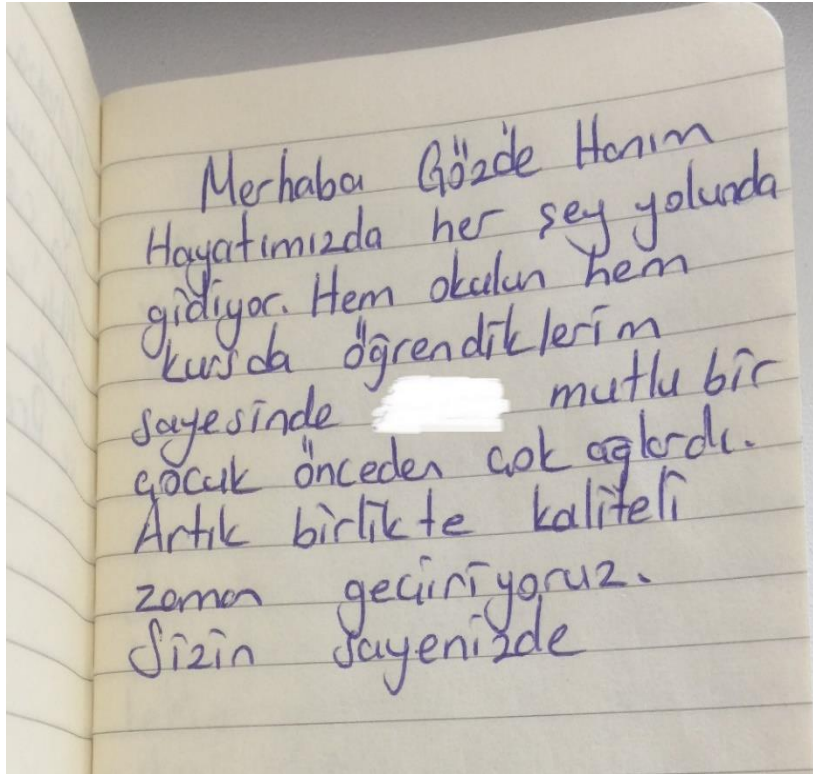 Merhaba Gözde Hanım
Hayatımızda her şey yolunda
gidiyor. Hem okulun hem
kursda öğrendiklerim
sayesinde mutlu bir
çocuk önceden çok ağlardı.
Artık birlikte kaliteli
zaman geçiriyoruz.
Sizin sayenizde